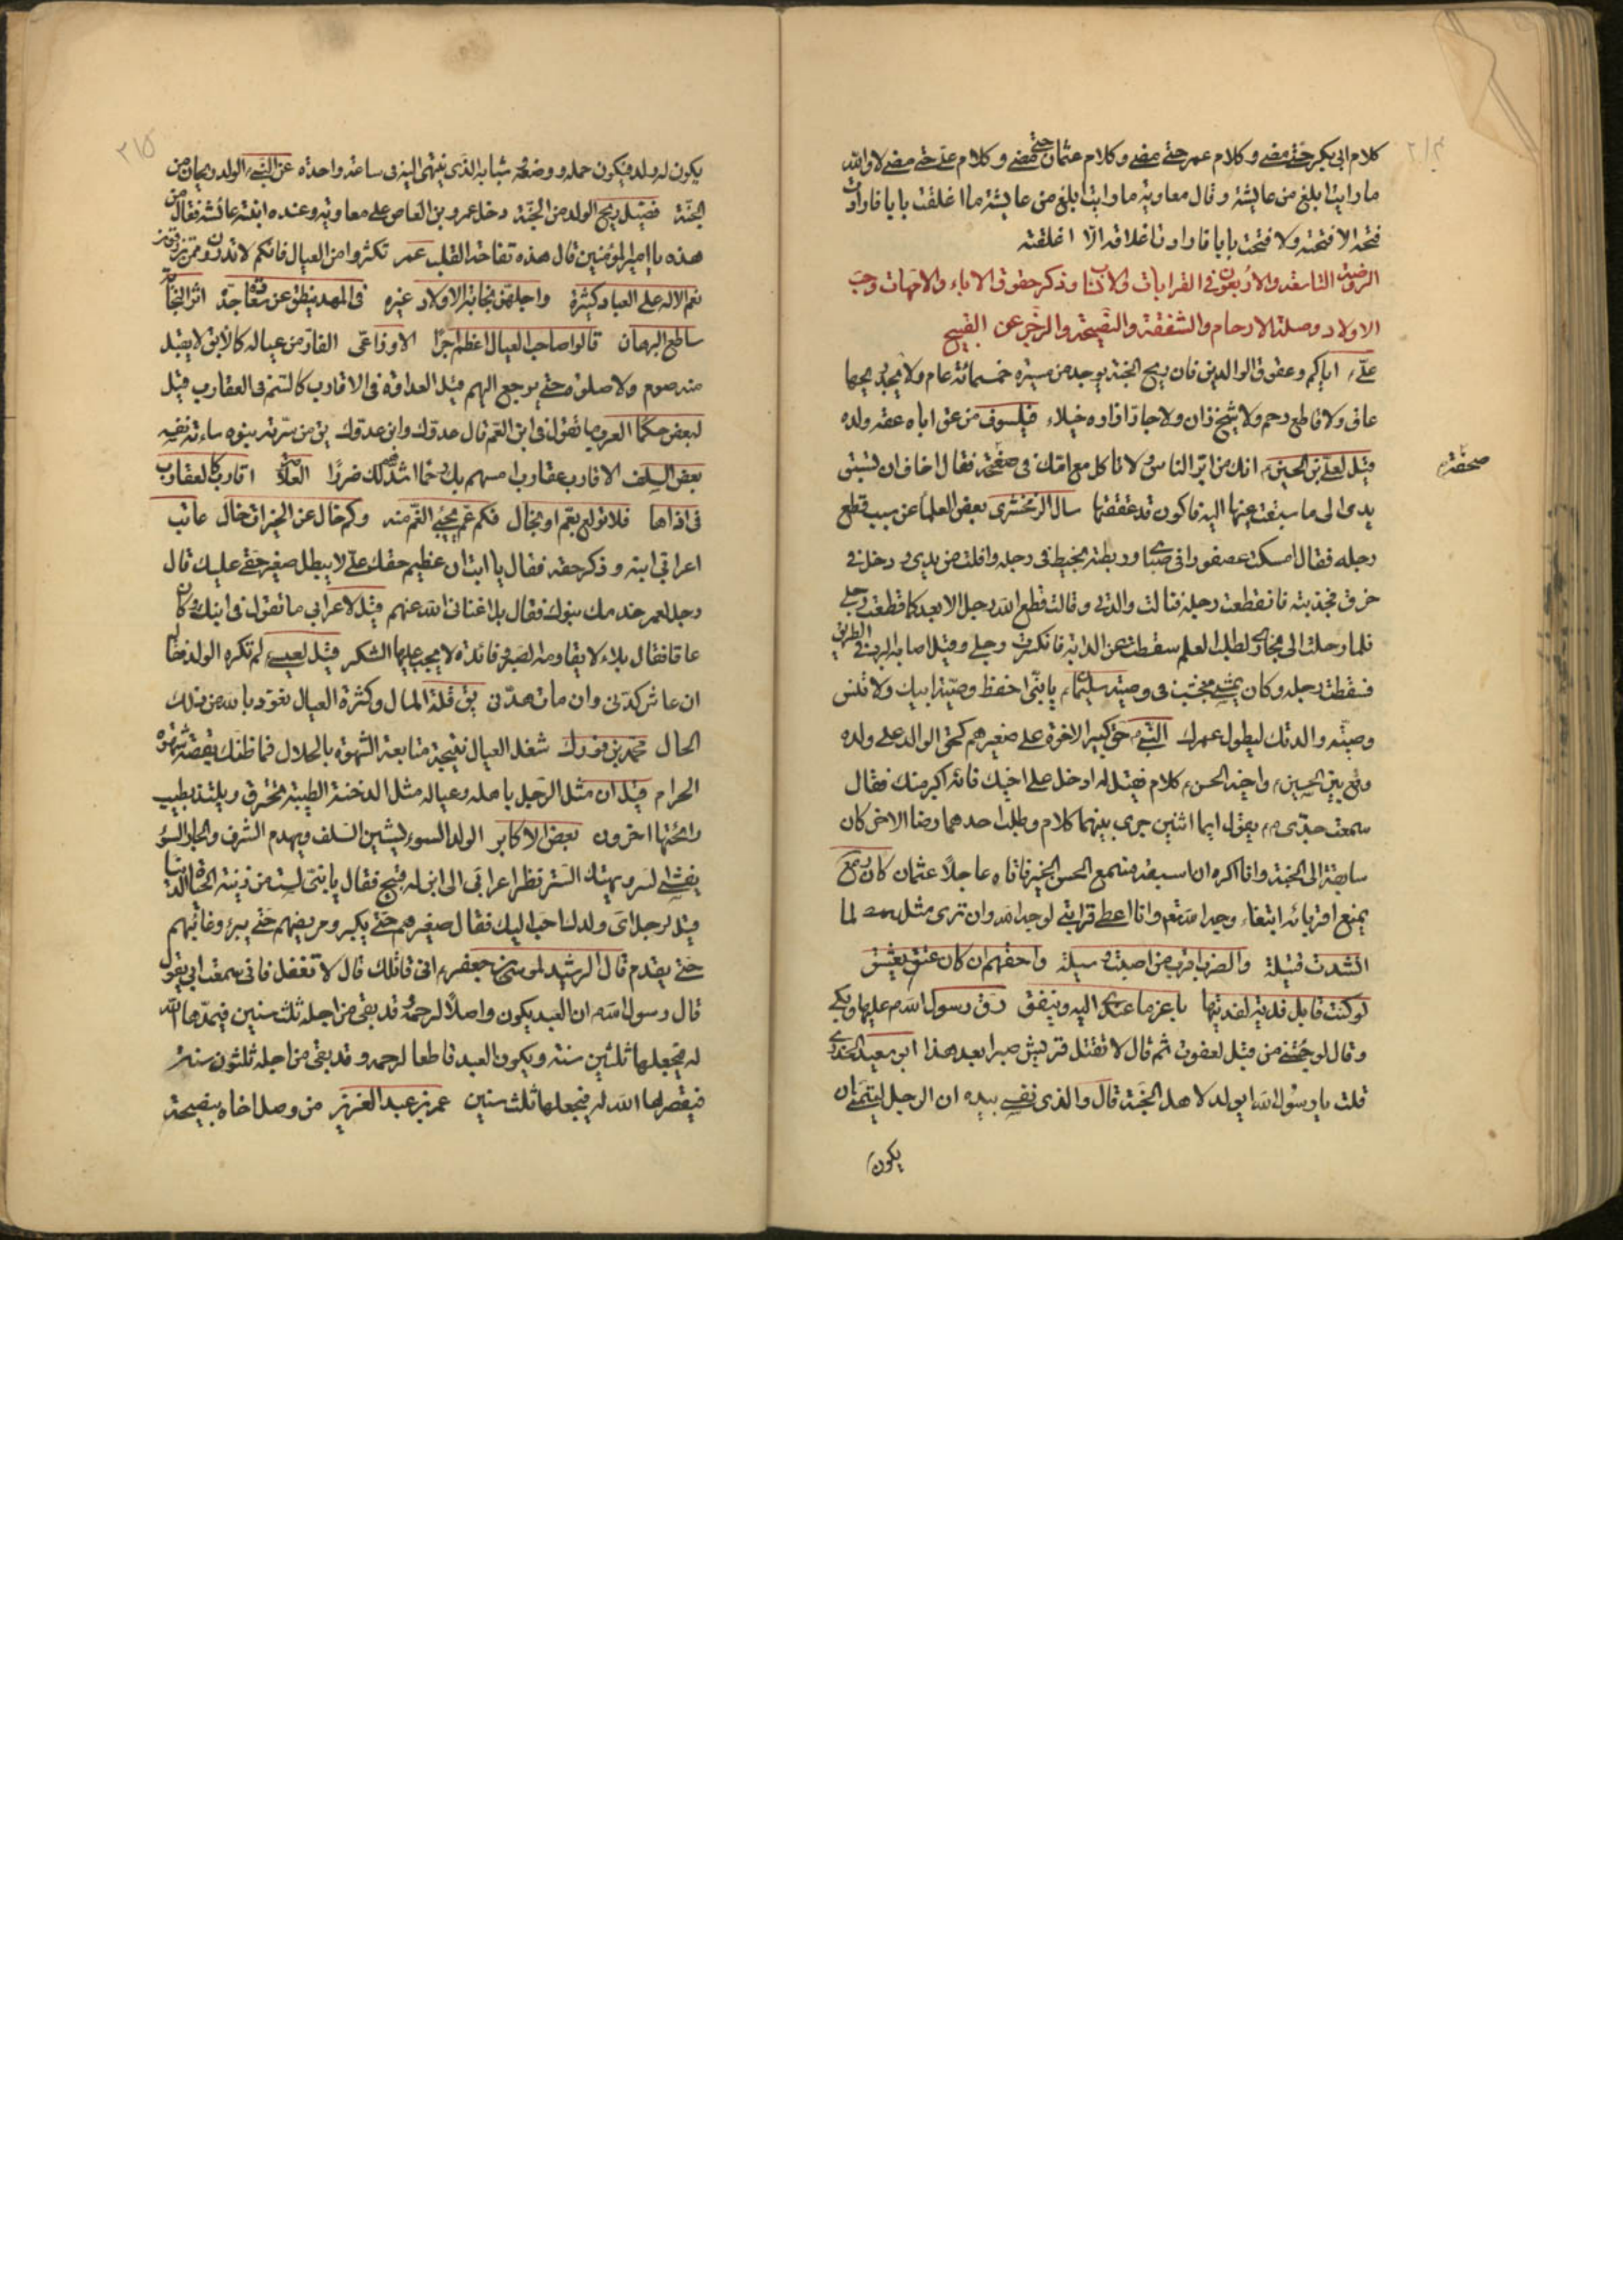 كلام ابى بكر حتى مضى وكلام عمر حتى مضى وكلام عثمان حتى مضى وكلام على حتى مضى لا والله
ما رايت ابلغ من عايشة وقال معاوية ما رايت ابلغ من عايشة ما اغلقت بابا فارادت
فتحه الا فتحته ولا فتحت بابا فارادت اغلاقه الا اغلقته
الروضة التاسعة والاربعون فى القرابات والانساب وذكر حقوق الاباء والامهات وحب
الاولاد وصلة الارحام والشفقة والنصيحة والزجر عن القبيح
على اياكم وعقوق الوالدين فان ريح الجنة يوجد من مسيرة خمسمائة عام ولا يجد ريحها
عاق ولا قاطع رحم ولا شيخ زان ولا جار ازاره خيلاء فيلسوف من عق اباه عقه ولده
قيل لعلى بن الحسين انك من ابر الناس ولا تاكل مع امك فى صحفة فقال اخاف ان تسبق
صحفة
يدى الى ما سبقت عينها اليه فاكون قد عققتها سال الزمخشرى بعض العلما عن سبب قطع
رجله فقال امسكت عصفورا فى صباى وربطته بخيط فى رجله وافلت من يدى ودخل فى
خرق فجذبته فانقطعت رجله فتالمت والدتى وقالت قطع الله رجل الابعد كما قطعت رجله
فلما رحلت الى بخارى لطلب العلم سقطت عن الدابة فانكسرت رجلى وقيل اصابه البرد فى الطريق
فسقطت رجله وكان يمشى بخشب فى وصية سليمان يا بنى احفظ وصية ابيك ولا تنس
وصية والدتك ليطول عمرك النبى حق كبير الاخوة على صغيرهم كحق الوالد على ولده
وقع بين الحسين واخيه الحسن كلام فقيل له ادخل على اخيك فانه اكبر منك فقال
سمعت جدى يقول ايما اثنين جرى بينهما كلام وطلب احدهما رضا الاخر كان
سابقه الى الجنة وانا اكره ان اسبقه فسمع الحسن الخبر فاتاه عاجلا عثمان كان عمر
يمنع اقربائه ابتغاء وجه الله وانا اعطى قرابتى لوجه الله وان ترى مثل عمر لما
انشدت قتيلة والنضر اقرب من اصبت وسيلة واحقهم ان كان عتق يعتق
لو كنت قابل فدية لفديتها باعز ما عندى اليه وينفق رق رسول الله عليها وبكى
وقال لو جئتنى من قبل لعفوت ثم قال لا تقتل قريش صبرا بعد هذا ابو سعيد الخدرى
قلت يا رسول الله ايولد لاهل الجنة قال والذى نفسى بيده ان الرجل ليتمنى ان
يكون
٢١٥
يكون له ولد فيكون حمله ووضعه وشبابه الذى ينتهى اليه فى ساعة واحدة عن النبى الولد ريحان من
الجنة فضيل ريح الولد من الجنة دخل عمرو بن العاص على معاوية وعنده ابنته عائشة فقال من
هذه يا امير المؤمنين قال هذه تفاحة القلب عمر تكثروا من العيال فانكم لا تدرون ممن ترزقون
نعم الاله على العباد كثيرة واجلهن نجابة الاولاد غيره فى المهد ينطق عن سعادة جده اثر النجابة
ساطع البرهان قالوا صاحب العيال اعظم اجرا الاوزاعى الفار من عياله كالابق لا يقبل
منه صوم ولا صلوة حتى يرجع اليهم قيل العداوة فى الاقارب كالسم فى العقارب قيل
لبعض حكما العرب ما تقول فى ابن العم قال عدوك وابن عدوك من سرته بنوه ساءته نفسه
بعض السلف الاقارب عقارب امسهم بك رحما اشدهم لك ضررا اقارب كالعقارب
فى اذاها فلا تولع بعم او بخال فكم عم يجىء الغم منه وكم خال عن الخيرات خال عاتب
اعرابى ابنه وذكر حقه فقال يا ابت ان عظيم حقك على لا يبطل صغير حقى عليك قال
رجل لعمر خدمك بنوك فقال بل اغنانى الله عنهم قيل لاعرابى ما تقول فى ابنك وكان
عاقا فقال بلاء لا يقاومه الصبر وفائدة لا يجب عليها الشكر قيل لعيسى لم تكره الولد فقال
ان عاش كدنى وان مات هدنى قلة المال وكثرة العيال نعوذ بالله من تلك
الحال محمد بن شغل العيال نتيجة متابعة الشهوة بالحلال فما ظنك بقصة شهوة
الحرام قيل ان مثل الرجل باهله وعياله مثل الدخنة الطيبة تحترق ويلتذ بطيب
رائحتها اخرون بعض الاكابر الولد السوء يشين السلف ويهدم الشرف والجار السوء
يفشى السر ويهتك الستر نظر اعرابى الى ابن له قبيح فقال يا بنى لست من زينة الحيوة الدنيا
قيل لرجل اى ولدك احب اليك فقال صغيرهم حتى يكبر ومريضهم حتى يبرء وغائبهم
حتى يقدم قال الرشيد لموسى بن جعفر انى قاتلك قال لا تفعل فانى سمعت ابى يقول
قال رسول الله ان العبد يكون واصلا لرحمه وقد بقى من اجله ثلث سنين فيمدها الله
له فيجعلها ثلثين سنة ويكون العبد قاطعا لرحمه وقد بقى من اجله ثلثون سنة
فيقصرها الله له فيجعلها ثلث سنين عمر بن عبد العزيز من وصل اخاه بنصيحة